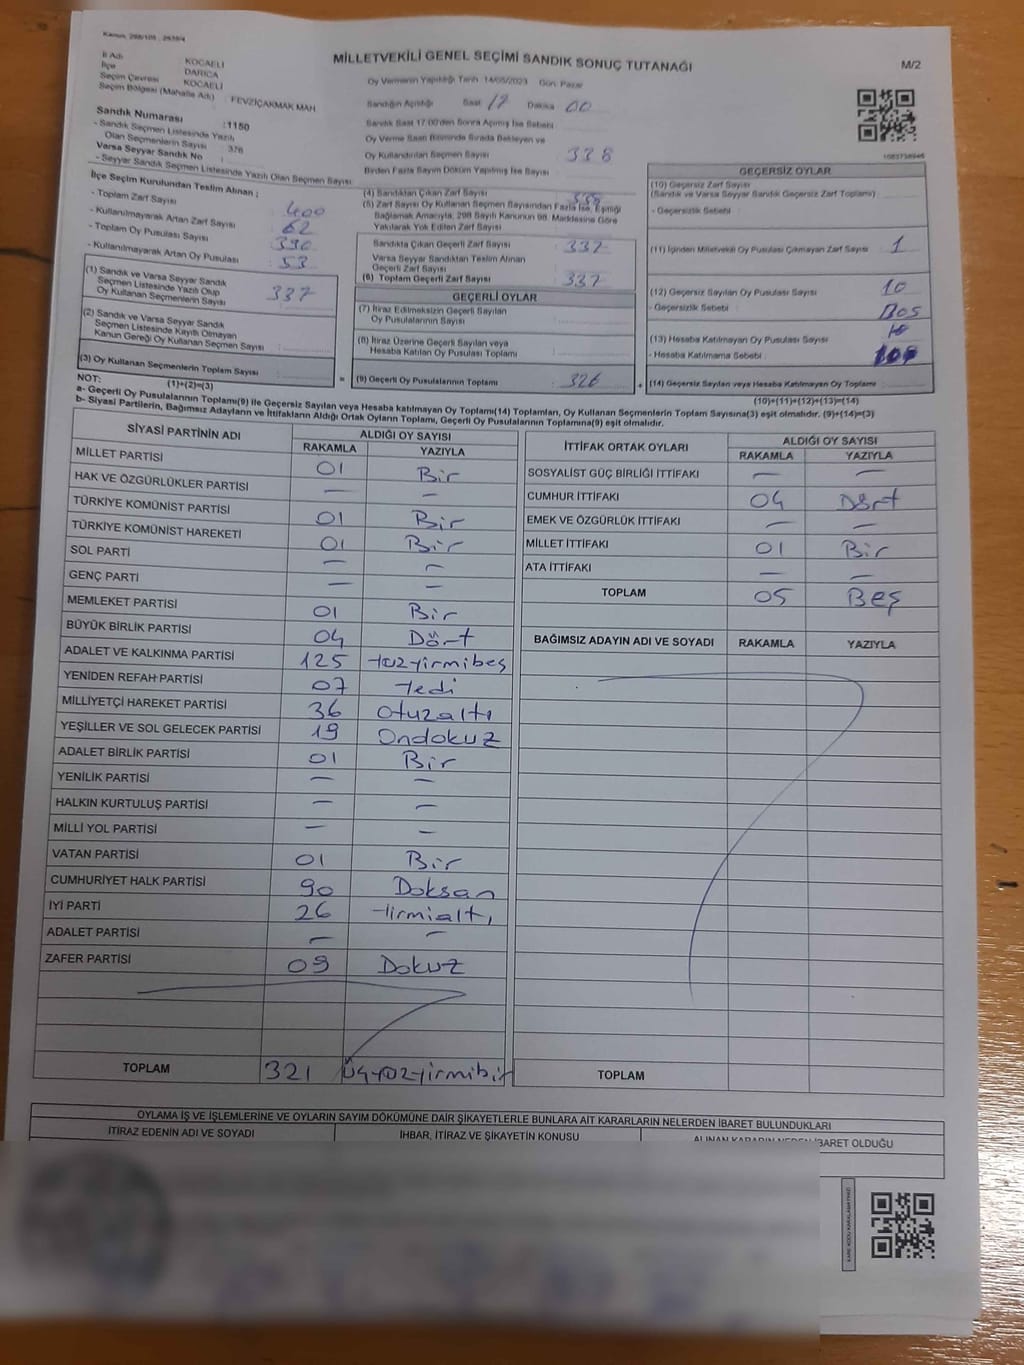 Kanun. 298/105 , 2839/4
MİLLETVEKİLİ GENEL SEÇİMİ SANDIK SONUÇ TUTANAĞI
M/2
İl Adı KOCAELİ
İlçe DARICA
Seçim Çevresi KOCAELİ
Seçim Bölgesi (Mahalle Adı) : FEVZİÇAKMAK MAH.
Sandık Numarası :1150
- Sandık Seçmen Listesinde Yazılı
Olan Seçmenlerin Sayısı 376
Varsa Seyyar Sandık No :
- Seyyar Sandık Seçmen Listesinde Yazılı Olan Seçmen Sayısı:
Oy Vermenin Yapıldığı Tarih 14/05/2023 Gün: Pazar
Sandığın Açıldığı Saat 17 Dakika 00
Sandık Saat 17:00'den Sonra Açılmış İse Sebebi
Oy Verme Saati Bitiminde Sırada Bekleyen ve
Oy Kullandırılan Seçmen Sayısı 338
Birden Fazla Sayım Döküm Yapılmış İse Sayısı
1083738946
İlçe Seçim Kurulundan Teslim Alınan ;
- Toplam Zarf Sayısı : 400
- Kullanılmayarak Artan Zarf Sayısı : 62
- Toplam Oy Pusulası Sayısı : 390
- Kullanılmayarak Artan Oy Pusulası : 53
(1) Sandık ve Varsa Seyyar Sandık
Seçmen Listesinde Yazılı Olup
Oy Kullanan Seçmenlerin Sayısı : 337
(2) Sandık ve Varsa Seyyar Sandık
Seçmen Listesinde Kayıtlı Olmayan
Kanun Gereği Oy Kullanan Seçmen Sayısı :
(3) Oy Kullanan Seçmenlerin Toplam Sayısı :
(1)+(2)=(3)
(4) Sandıktan Çıkan Zarf Sayısı
(5) Zarf Sayısı Oy Kullanan Seçmen Sayısından Fazla İse, Eşitliği
Sağlamak Amacıyla, 298 Sayılı Kanunun 98. Maddesine Göre
Yakılarak Yok Edilen Zarf Sayısı
Sandıkta Çıkan Geçerli Zarf Sayısı : 337
Varsa Seyyar Sandıktan Teslim Alınan
Geçerli Zarf Sayısı
(6) Toplam Geçerli Zarf Sayısı : 337
GEÇERLİ OYLAR
(7) İtiraz Edilmeksizin Geçerli Sayılan
Oy Pusulalarının Sayısı
(8) İtiraz Üzerine Geçerli Sayılan veya
Hesaba Katılan Oy Pusulası Toplamı
= (9) Geçerli Oy Pusulalarının Toplamı : 326 +
GEÇERSİZ OYLAR
(10) Geçersiz Zarf Sayısı
(Sandık ve Varsa Seyyar Sandık Geçersiz Zarf Toplamı)
- Geçersizlik Sebebi :
(11) İçinden Milletvekili Oy Pusulası Çıkmayan Zarf Sayısı : 1
(12) Geçersiz Sayılan Oy Pusulası Sayısı : 10
- Geçersizlik Sebebi : Boş
(13) Hesaba Katılmayan Oy Pusulası Sayısı
- Hesaba Katılmama Sebebi :
(14) Geçersiz Sayılan veya Hesaba Katılmayan Oy Toplamı :
(10)+(11)+(12)+(13)=(14)
NOT:
a- Geçerli Oy Pusulalarının Toplamı(9) ile Geçersiz Sayılan veya Hesaba katılmayan Oy Toplamı(14) Toplamları, Oy Kullanan Seçmenlerin Toplam Sayısına(3) eşit olmalıdır. (9)+(14)=(3)
b- Siyasi Partilerin, Bağımsız Adayların ve İttifakların Aldığı Ortak Oyların Toplamı, Geçerli Oy Pusulalarının Toplamına(9) eşit olmalıdır.
SİYASİ PARTİNİN ADI ALDIĞI OY SAYISI
RAKAMLA YAZIYLA
MİLLET PARTİSİ 01 Bir
HAK VE ÖZGÜRLÜKLER PARTİSİ — —
TÜRKİYE KOMÜNİST PARTİSİ 01 Bir
TÜRKİYE KOMÜNİST HAREKETİ 01 Bir
SOL PARTİ — —
GENÇ PARTİ — —
MEMLEKET PARTİSİ 01 Bir
BÜYÜK BİRLİK PARTİSİ 04 Dört
ADALET VE KALKINMA PARTİSİ 125 Yüzyirmibeş
YENİDEN REFAH PARTİSİ 07 Yedi
MİLLİYETÇİ HAREKET PARTİSİ 36 Otuzaltı
YEŞİLLER VE SOL GELECEK PARTİSİ 19 Ondokuz
ADALET BİRLİK PARTİSİ 01 Bir
YENİLİK PARTİSİ — —
HALKIN KURTULUŞ PARTİSİ — —
MİLLİ YOL PARTİSİ — —
VATAN PARTİSİ 01 Bir
CUMHURİYET HALK PARTİSİ 90 Doksan
İYİ PARTİ 26 Yirmialtı
ADALET PARTİSİ — —
ZAFER PARTİSİ 09 Dokuz
TOPLAM 321 Üçyüzyirmibir
İTTİFAK ORTAK OYLARI ALDIĞI OY SAYISI
RAKAMLA YAZIYLA
SOSYALİST GÜÇ BİRLİĞİ İTTİFAKI — —
CUMHUR İTTİFAKI 04 Dört
EMEK VE ÖZGÜRLÜK İTTİFAKI — —
MİLLET İTTİFAKI 01 Bir
ATA İTTİFAKI — —
TOPLAM 05 Beş
BAĞIMSIZ ADAYIN ADI VE SOYADI RAKAMLA YAZIYLA
TOPLAM
OYLAMA İŞ VE İŞLEMLERİNE VE OYLARIN SAYIM DÖKÜMÜNE DAİR ŞİKAYETLERLE BUNLARA AİT KARARLARIN NELERDEN İBARET BULUNDUKLARI
İTİRAZ EDENİN ADI VE SOYADI İHBAR, İTİRAZ VE ŞİKAYETİN KONUSU ALINAN KARARIN NEDEN İBARET OLDUĞU